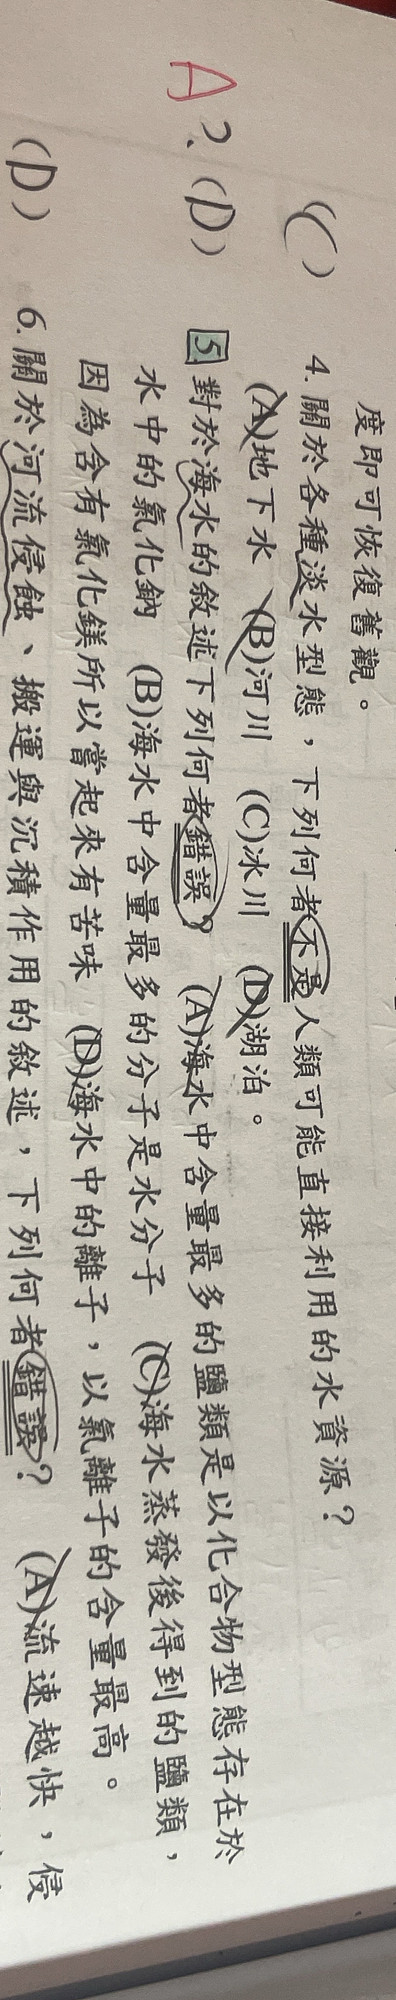 度即可恢復舊觀。
(C) 4. 關於各種淡水型態，下列何者不是人類可能直接利用的水資源？
(A)地下水 (B)河川 (C)冰川 (D)湖泊。
A ?、(D) 5. 對於海水的敘述下列何者錯誤？ (A)海水中含量最多的鹽類是以化合物型態存在於
水中的氯化鈉 (B)海水中含量最多的分子是水分子 (C)海水蒸發後得到的鹽類，
因為含有氯化鎂所以嘗起來有苦味 (D)海水中的離子，以氯離子的含量最高。
(D) 6. 關於河流侵蝕、搬運與沉積作用的敘述，下列何者錯誤？ (A)流速越快，侵